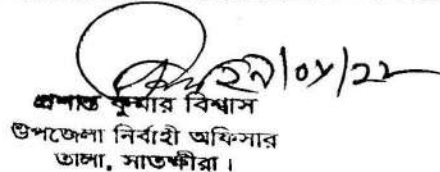 ২৯/০৮/২২
প্রশান্ত কুমার বিশ্বাস
উপজেলা নির্বাহী অফিসার
তালা, সাতক্ষীরা।